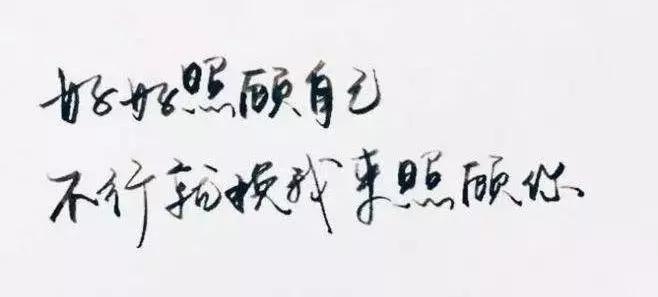 好好照顾自己
不行就换我来照顾你